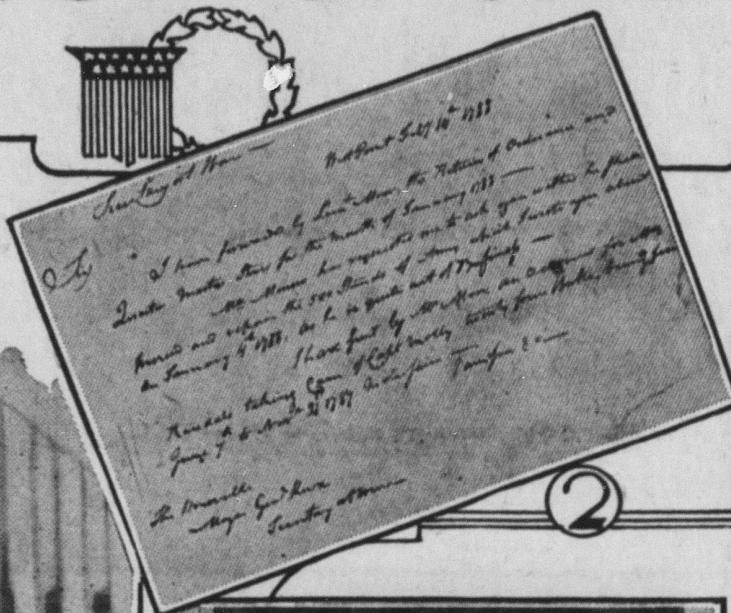 Secretary at War —
West Point Feby 14th 1788
Sir,
I have forwarded by Lieut Moor the Return of Ordnance and
Quarter Master Stores for the month of January 1788 —
Mr. has requested me to ask you whether he shall
proceed and repair the 500 Stands of Arms which I wrote you about
on January 4th 1788, as he is quite out of Business —
I have sent by Mr Moor an account for Mrs
Randall taking Care of Capt Molly twenty four Weeks, being from
June 7th to Novr 21st 1787
I am Sir &c —
The Honorable
Major Genl Knox
Secretary at War —
2